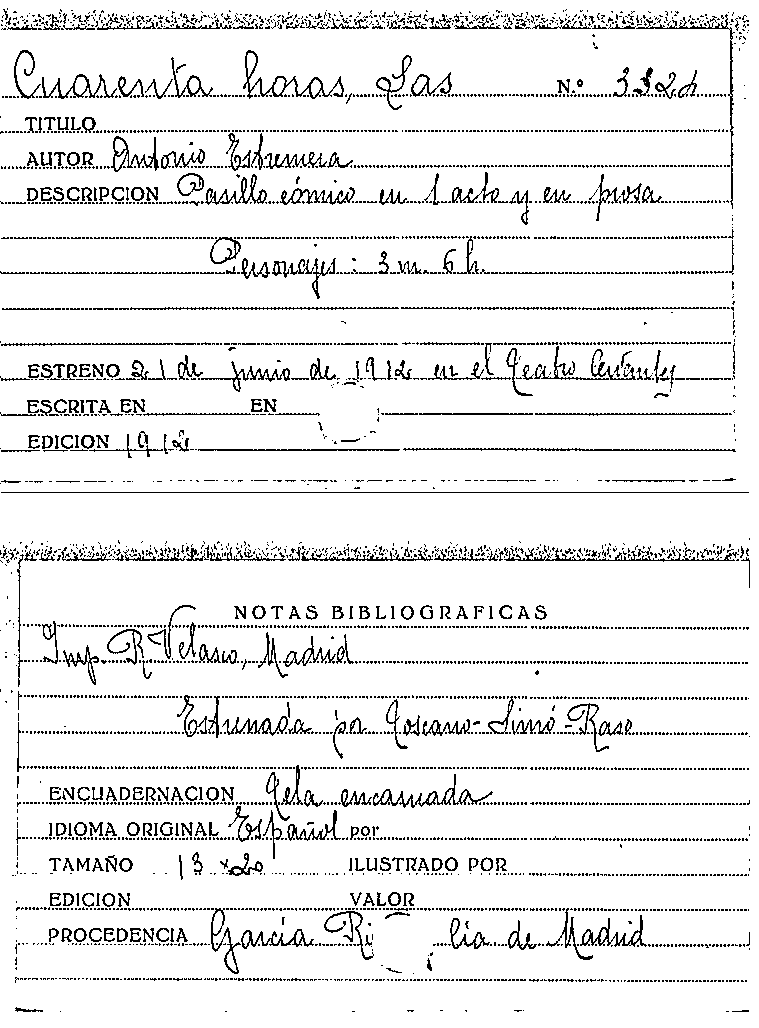 Cuarenta horas, Las N.º 3324
TITULO
AUTOR Antonio Estremera
DESCRIPCION Pasillo cómico en 1 acto y en prosa
Personajes: 3 m. 6 h.
ESTRENO 21 de junio de 1912 en el Teatro Cervantes
ESCRITA EN EN
EDICION 1912
NOTAS BIBLIOGRAFICAS
Imp. R Velasco, Madrid
Estrenada por Toscano-Simó-Raso
ENCUADERNACION Tela encarnada
IDIOMA ORIGINAL Español por
TAMAÑO 13 x 20 ILUSTRADO POR
EDICION VALOR
PROCEDENCIA García Ri lia de Madrid